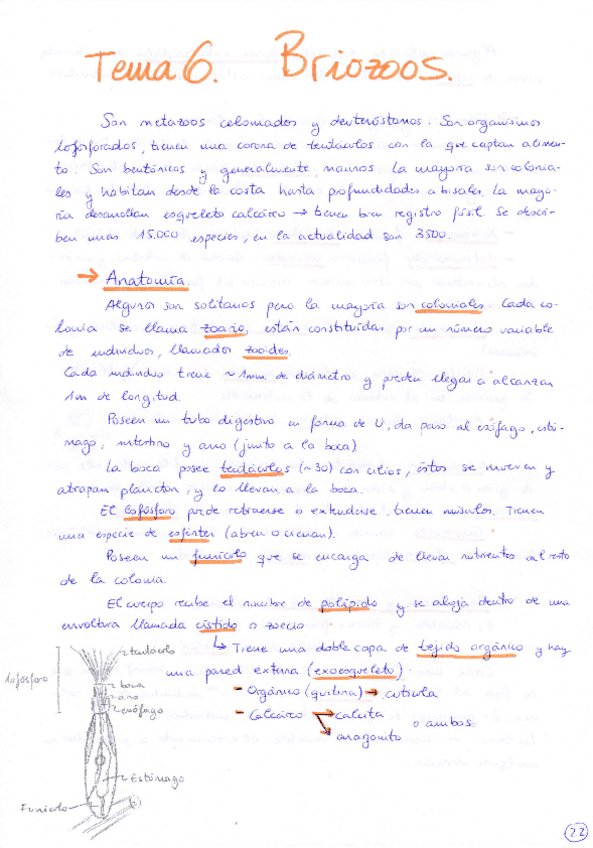 Tema 6. Briozoos.
Son metazoos celomados y deuteróstomos. Son organismos
lofoforados, tienen una corona de tentáculos con la que captan alimen-
to. Son bentónicos y generalmente marinos. La mayoría son colonia-
les y habitan desde la costa hasta profundidades abisales. La mayo-
ría desarrollan esqueleto calcáreo → tienen buen registro fósil. Se descri-
ben unas 15.000 especies, en la actualidad son 3500.
→ Anatomía.
Algunos son solitarios pero la mayoría son coloniales. Cada co-
lonia se llama zoario, están constituidas por un número variable
de individuos, llamados zooides.
Cada individuo tiene ~1mm. de diámetro y pueden llegar a alcanzar
1m de longitud.
Poseen un tubo digestivo en forma de U, da paso al esófago, estó-
mago, intestino y ano (junto a la boca)
La boca posee tentáculos (~30) con cilios, éstos se mueven y
atrapan plancton, y lo llevan a la boca.
El lofóforo puede retraerse o extenderse. tienen músculos. Tienen
una especie de esfínter (abren o cierran).
Poseen un funículo que se encarga de llevar nutrientes al resto
de la colonia.
El cuerpo recibe el nombre de polípido y se aloja dentro de una
envoltura llamada cístido o zoecio
↳ Tiene una doble capa de tejido orgánico y hay
una pared externa (exoesqueleto)
- Orgánico (quitina) → cutícula
- Calcáreo → calcita
aragonito
o ambos.
lofóforo
tentáculo
boca
ano
esófago
Estómago
Funículo
22